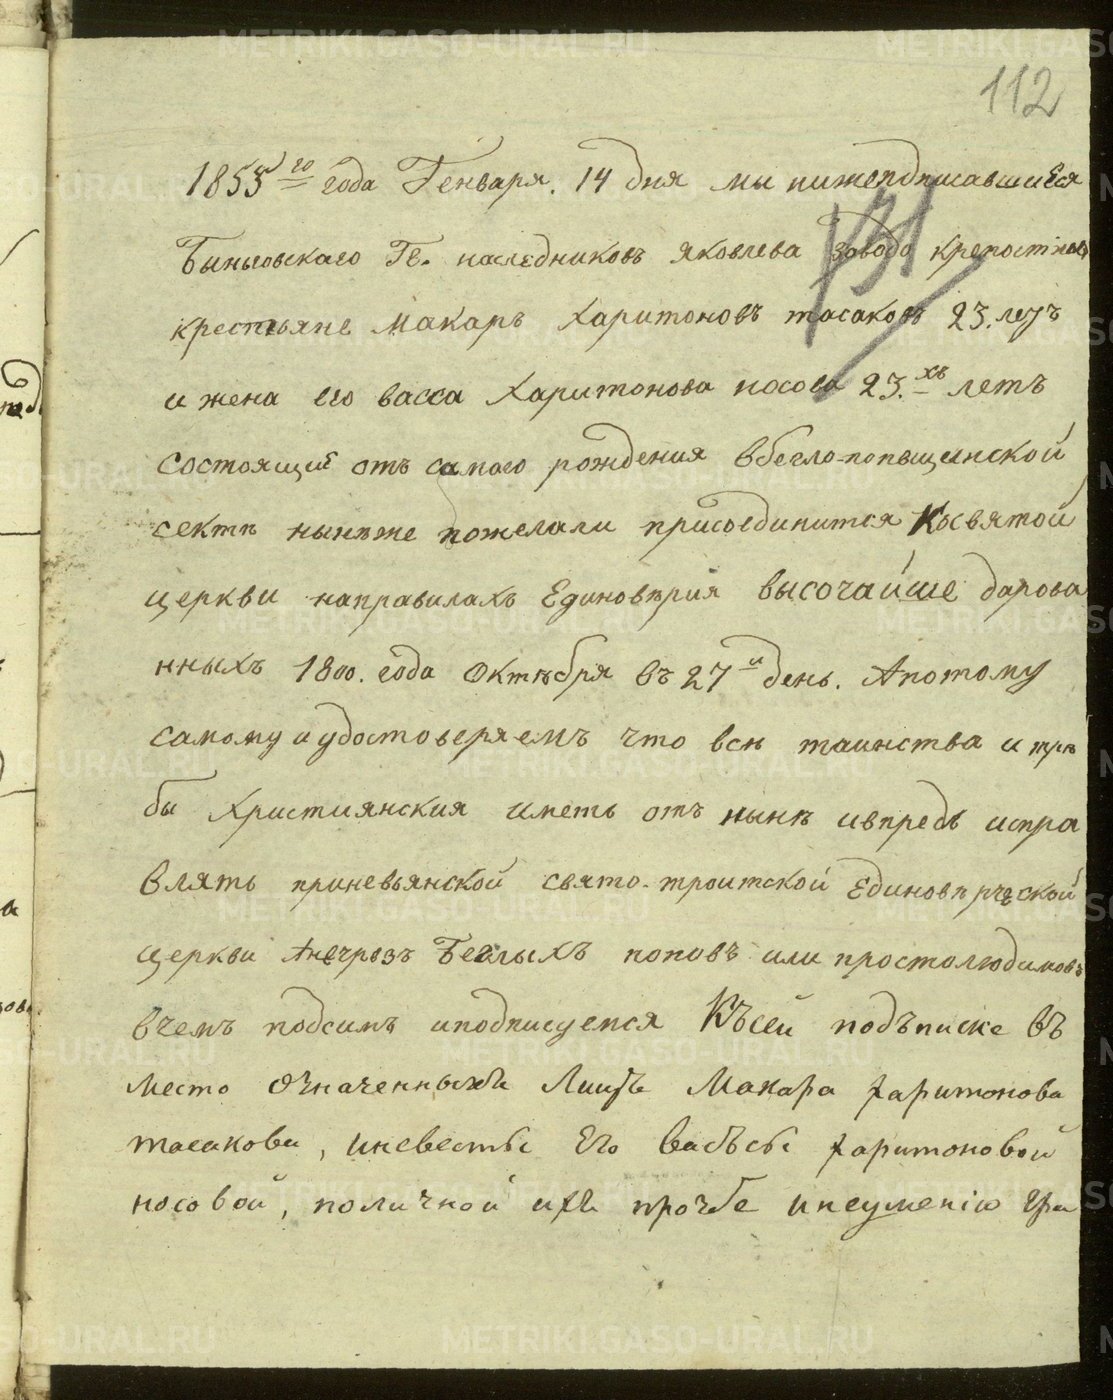 112
1853го года Генваря. 14 дня мы нижеподписавшиеся
131
Быньговскаго Гг. наследниковъ яковлева завода крепостныя
крестьяне Макаръ Харитоновъ тасаковъ 23. летъ
и жена его васса Харитонова носова 23.хъ летъ
состоящии отъ самого рождения вбегло-попвщинской
сектѣ нынѣже пожелали присоединится Късвятой
церкви направилахъ Единовѣрия высочайше дарова
нныхъ 1800. года Октября въ 27й день. Апотому
самому и удостоверяемъ что всѣ таинства и трѣ
бы Християнския иметь отъ нынѣ ивпредь испра
влять приневьянской свято-троитской Единовѣрческой
церкви Анечрезъ Беглыхъ поповъ или простолюдиновъ
вчемъ подсимъ иподписуемся Късей подъписке въ
место означенныхъ Лицъ Макара харитонова
тасакова, иневесты Его васъсы харитоновой
носовой, поличной ихъ прозбе инеумению гра